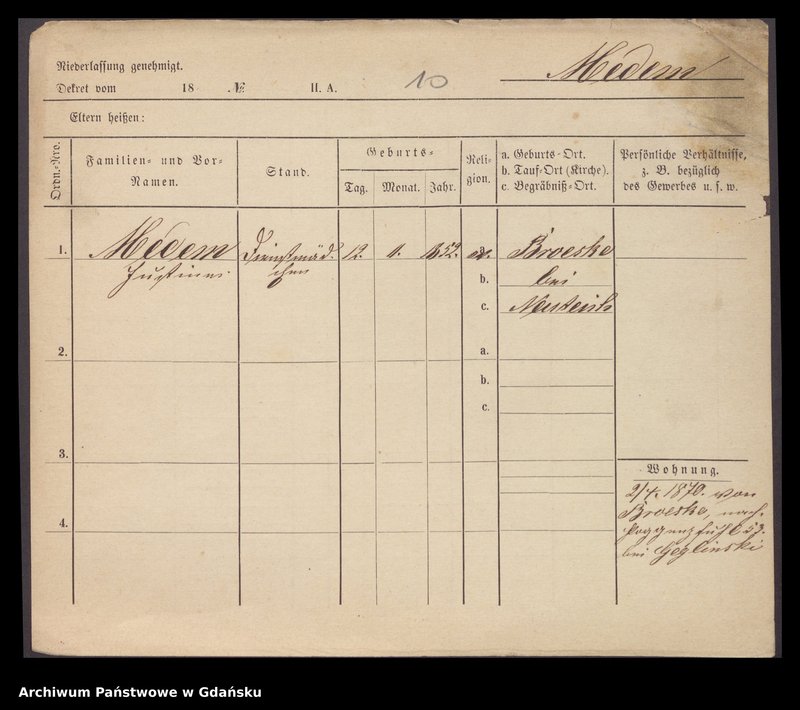 Niederlassung genehmigt.
Medem
Dekret vom 18 . № II. A.
10
Eltern heißen:
Ordn.-Nro.
Familien- und Vor-
Namen.
Stand.
Geburts-
Tag. Monat. Jahr.
Reli-
gion.
a. Geburts-Ort.
b. Tauf-Ort (Kirche).
c. Begräbniß-Ort.
Persönliche Verhältnisse,
z. B. bezüglich
des Gewerbes u. s. w.
1. Medem Dienstmäd- 12. 1852. a. Broeske
Justine chen b. bei
c. Neuteich
2. a.
b.
c.
3.
Wohnung.
2/4. 1870. von
Broeske, nach
4. Poggenpfuhl 59.
bei Geglinski
Archiwum Państwowe w Gdańsku